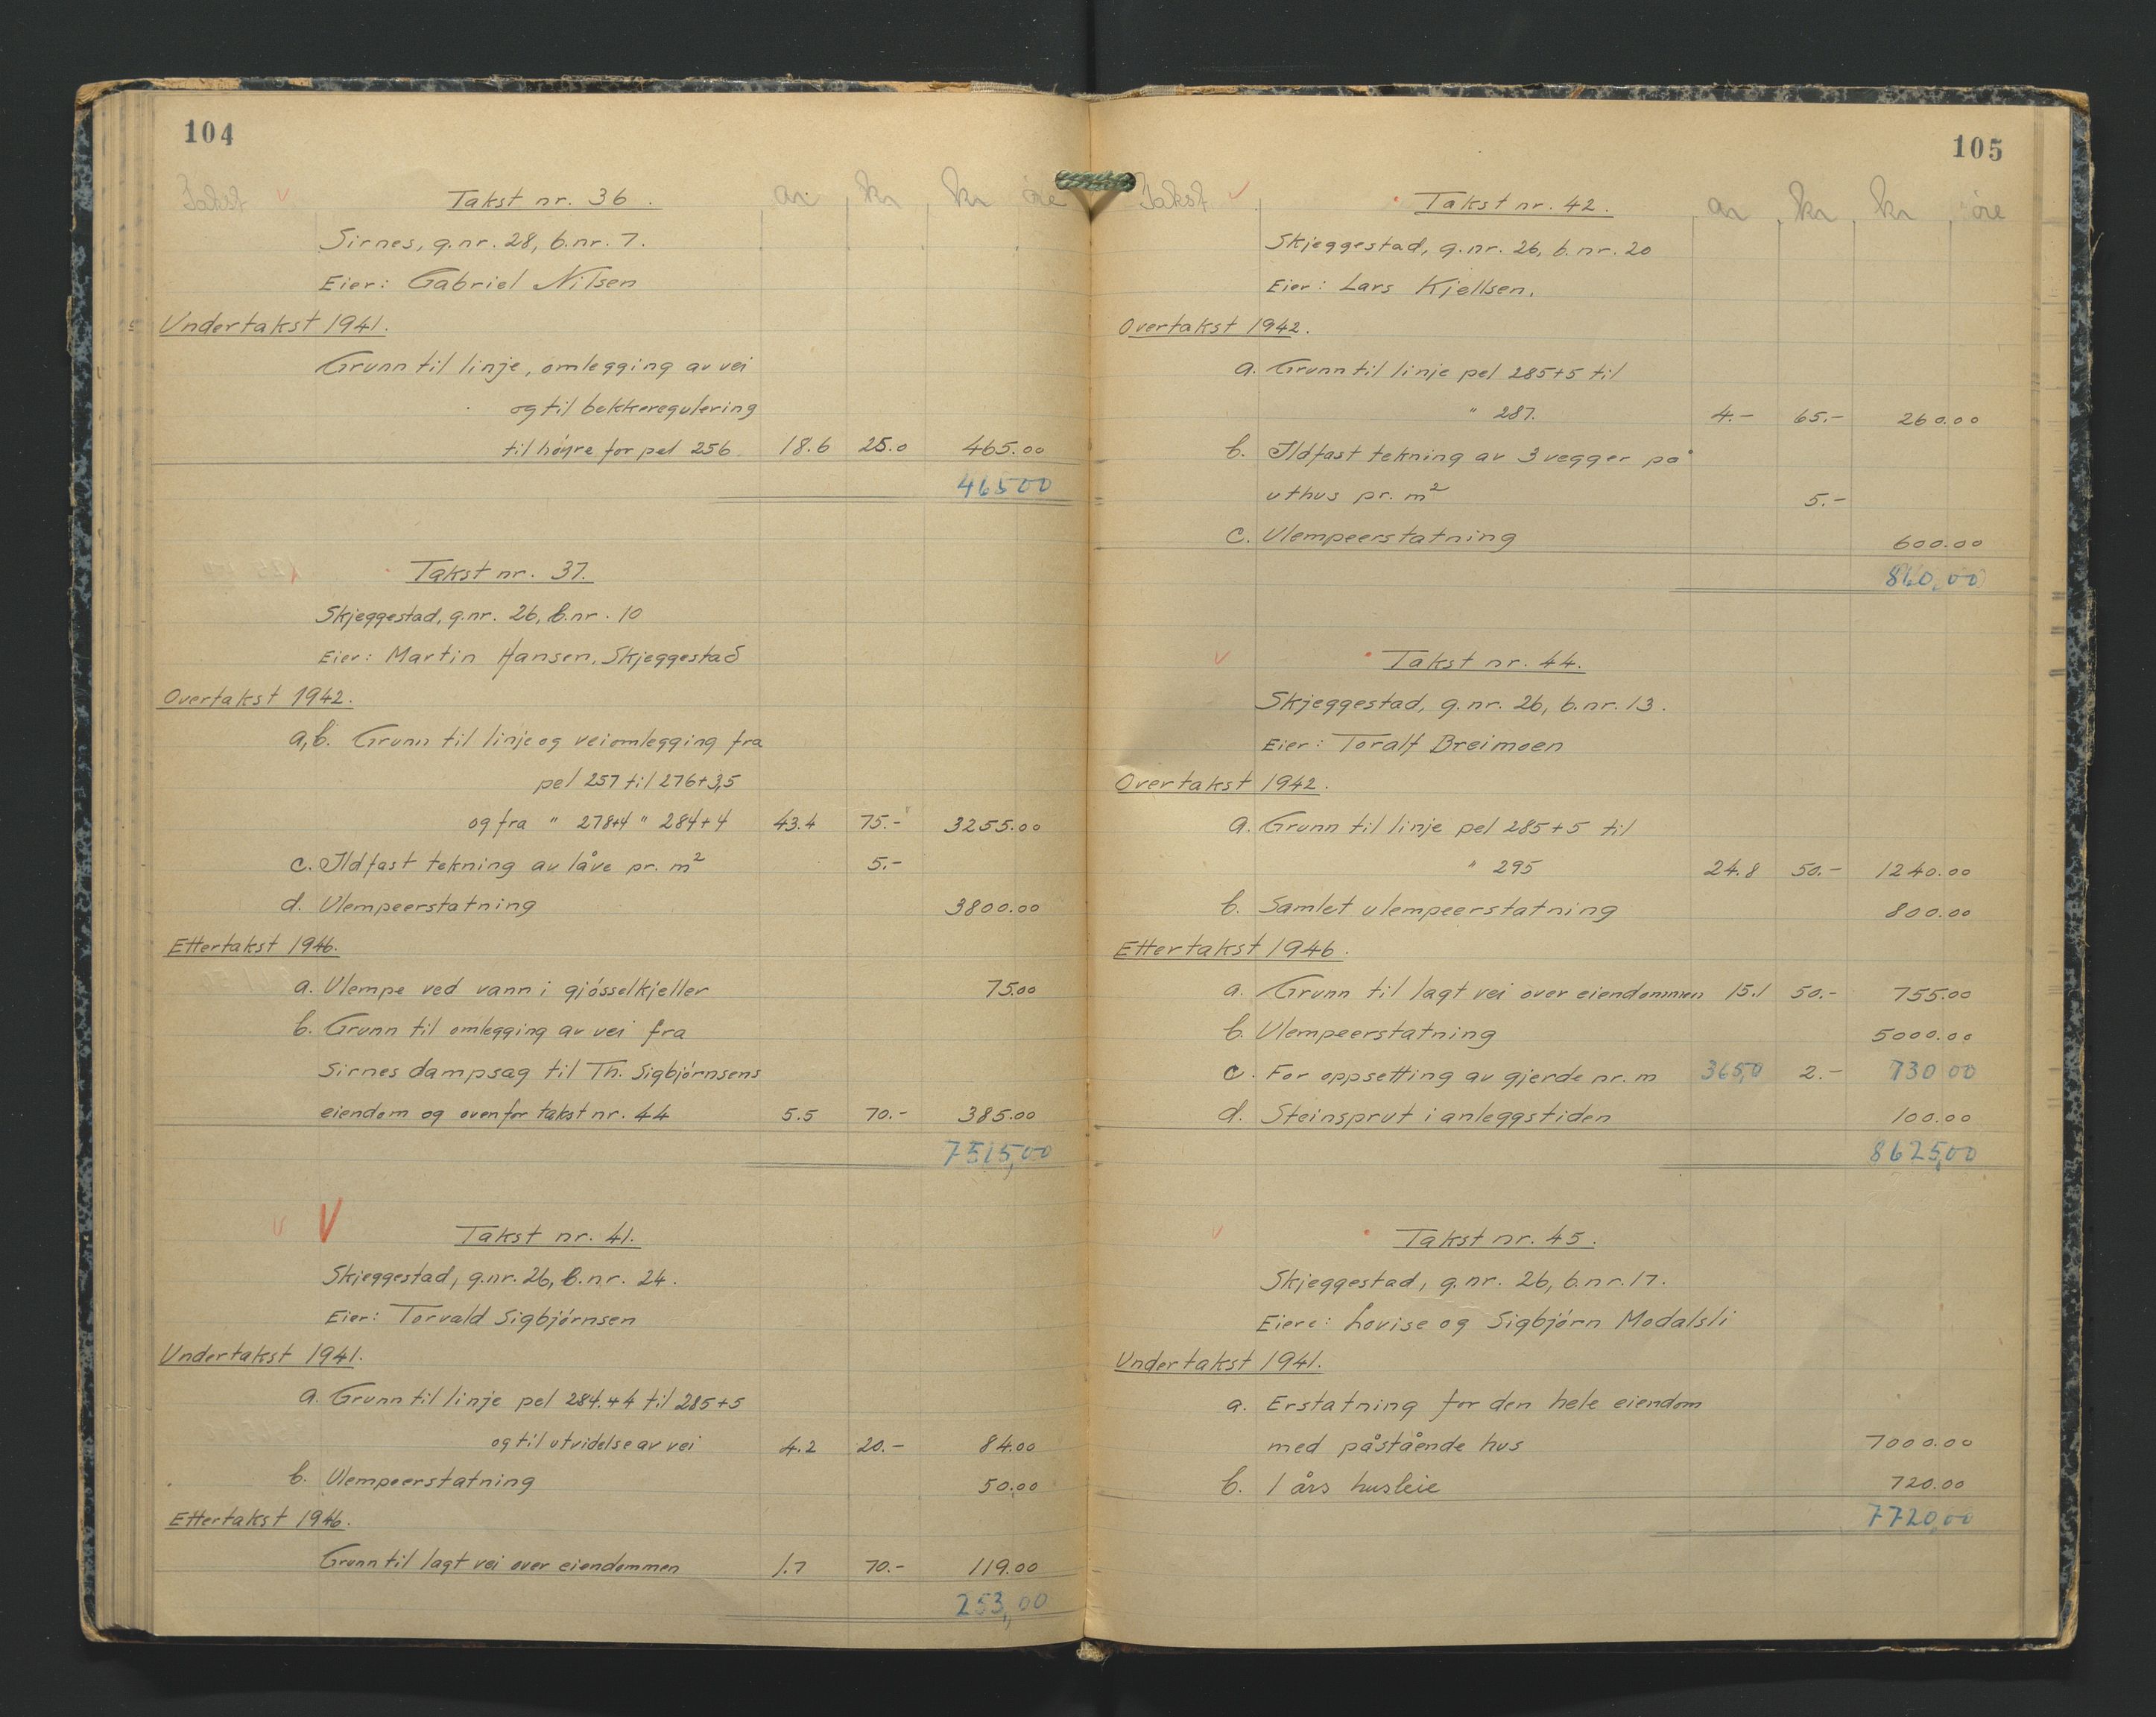 104
Takst v Takst nr. 36. ar kr kr øre
Sirnes, g.nr. 28, b.nr. 7.
Eier: Gabriel Nilsen
Undertakst 1941.
Grunn til linje, omlegging av vei
og til bekkeregulering
til høyre for pel 256. 18.6 25.0 465.00
46500
Takst nr. 37.
Skjeggestad, g.nr. 26, b.nr. 10
Eier: Martin Hansen, Skjeggestad
Overtakst 1942.
a,b. Grunn til linje og veiomlegging fra
pel 257 til 276+3,5
og fra " 278+4 " 284+4 43.4 75.- 3255.00
c. Ildfast tekning av låve pr. m² 5.-
d. Ulempeerstatning 3800.00
Ettertakst 1946.
a. Ulempe ved vann i gjósselkjeller 75.00
b. Grunn til omlegging av vei fra
Sirnes dampsag til Th. Sigbjórnsens
eiendom og ovenfor takst nr. 44 5.5 70.- 385.00
7515,00
v V Takst nr. 41.
Skjeggestad, g.nr. 26, b.nr. 24.
Eier: Torvald Sigbjórnsen
Undertakst 1941.
a. Grunn til linje pel 284.+4 til 285+5
og til utvidelse av vei 4.2 20.- 84.00
b. Ulempeerstatning 50.00
Ettertakst 1946.
Grunn til lagt vei over eiendommen 1.7 70.- 119.00
253,00
105
Takst v Takst nr. 42. ar kr kr øre
Skjeggestad, g.nr. 26, b.nr. 20
Eier: Lars Kjellsen.
Overtakst 1942.
a. Grunn til linje pel 285+5 til
" 287. 4.- 65.- 260.00
b. Ildfast tekning av 3 vegger på
uthus pr. m² 5.-
c. Ulempeerstatning 600.00
860,00
v Takst nr. 44.
Skjeggestad, g.nr. 26, b.nr. 13.
Eier: Toralf Breimoen
Overtakst 1942.
a. Grunn til linje pel 285+5 til
" 295 24.8 50.- 1240.00
b. Samlet ulempeerstatning 800.00
Ettertakst 1946.
a. Grunn til lagt vei over eiendommen 15.1 50.- 755.00
b. Ulempeerstatning 5000.00
c. For oppsetting av gjerde nr. m 365,0 2.- 730 00
d. Steinsprut i anleggstiden 100.00
8625,00
v Takst nr. 45.
Skjeggestad, g.nr. 26, b.nr. 17.
Eiere: Lovise og Sigbjórn Modalsli
Undertakst 1941.
a. Erstatning for den hele eiendom
med påstående hus 7000.00
b. 1 års husleie 720.00
7720,00